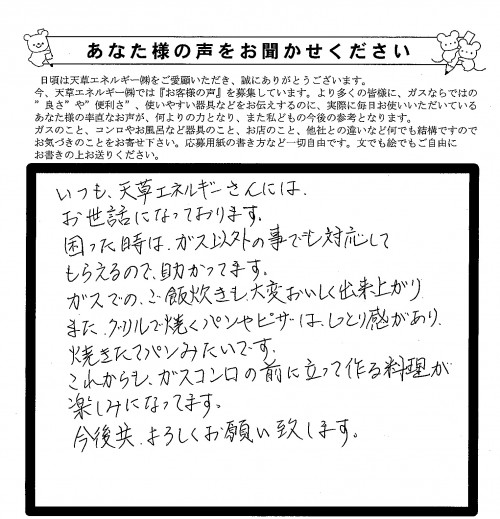 あなた様の声をお聞かせください
日頃は天草エネルギー㈱をご愛願いただき、誠にありがとうございます。
今、天草エネルギー㈱では『お客様の声』を募集しています。より多くの皆様に、ガスならではの
”良さ”や”便利さ”、使いやすい器具などをお伝えするのに、実際に毎日お使いいただいている
あなた様の率直なお声が、何よりの力となり、また私どもの今後の参考となります。
ガスのこと、コンロやお風呂など器具のこと、お店のこと、他社との違いなど何でも結構ですので
お気づきのことをお寄せ下さい。応募用紙の書き方など一切自由です。文でも絵でもご自由に
お書きの上お送りください。
いつも、天草エネルギーさんには、
お世話になっております。
困った時は、ガス以外の事でも対応して
もらえるので、助かってます。
ガスでの、ご飯炊きも、大変おいしく出来上がり
また、グリルで焼くパンやピザは、しっとり感があり、
焼きたてパンみたいです。
これからも、ガスコンロの前に立って作る料理が
楽しみになってます。
今後共、よろしくお願い致します。